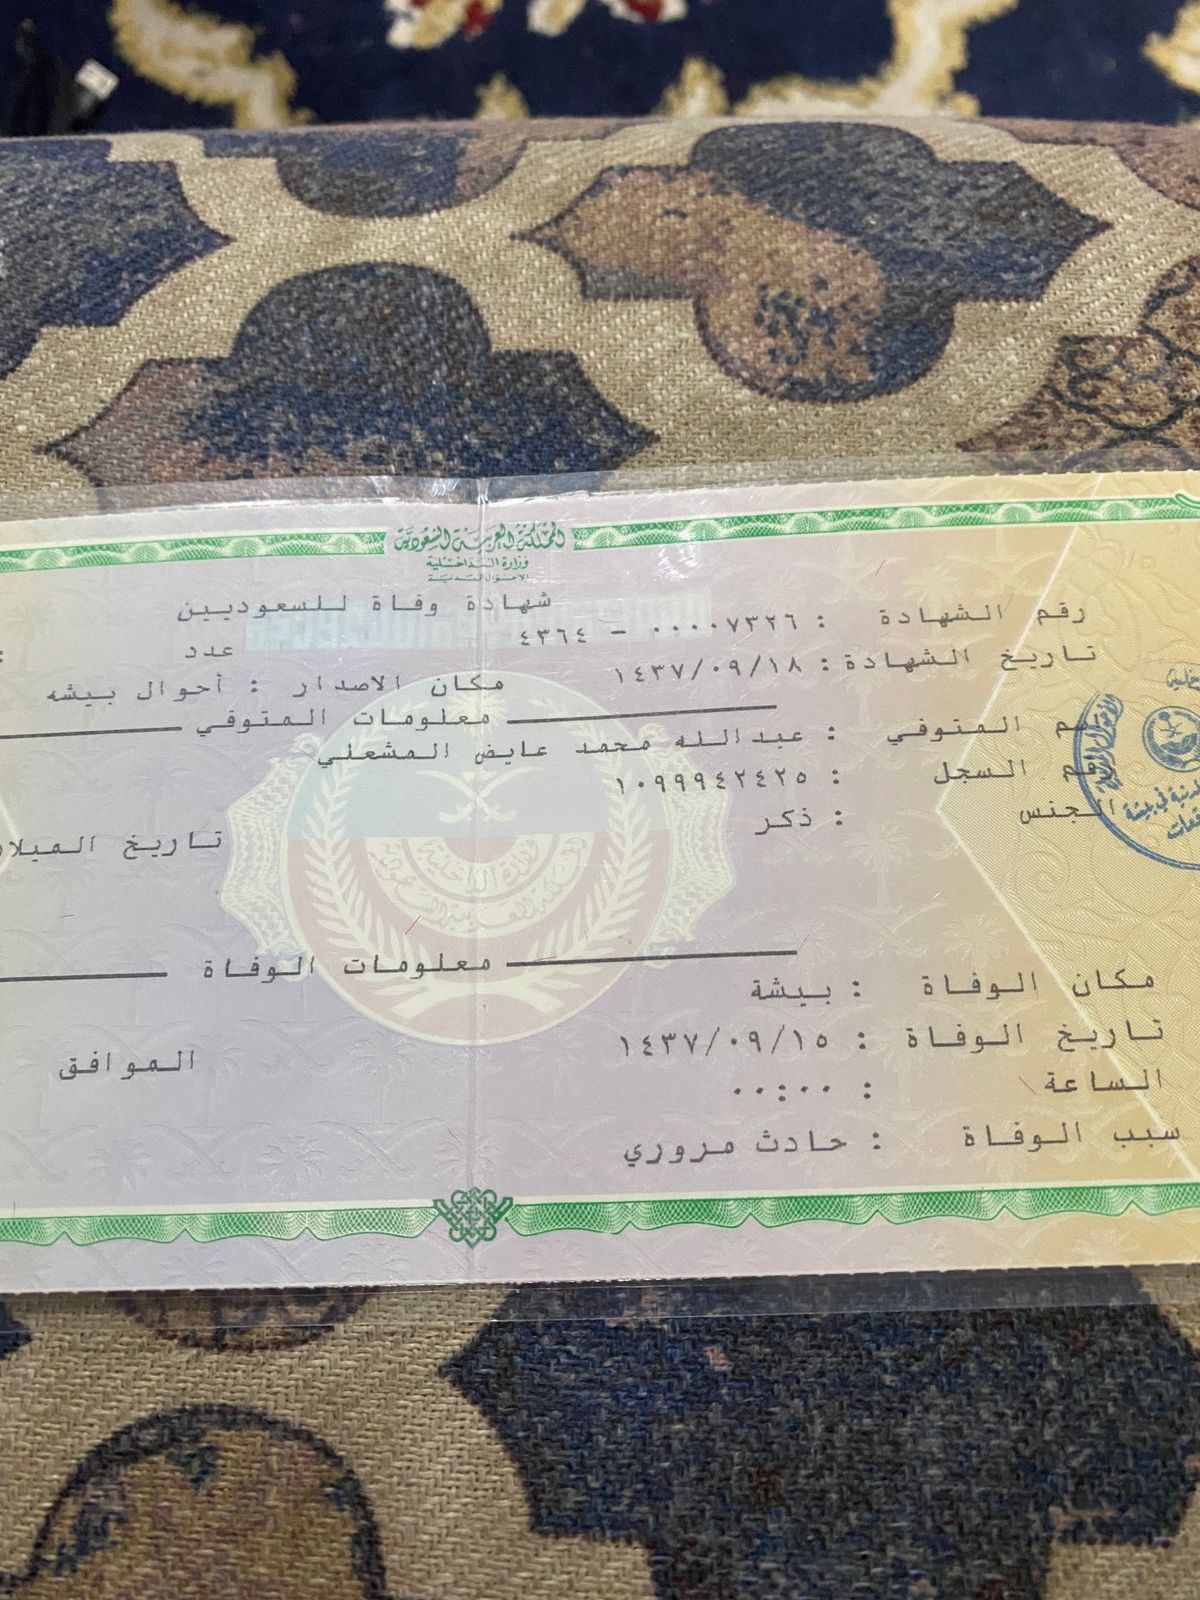 المملكة العربية السعودية
وزارة الداخلية
الأحوال المدنية
شهادة وفاة للسعوديين
رقم الشهادة : ٠٠٠٠٧٣٢٦ - ٤٣٦٤
عدد :
تاريخ الشهادة : ١٤٣٧/٠٩/١٨ مكان الاصدار : أحوال بيشه
معلومات المتوفي
المتوفي : عبدالله محمد عايض المشعلي
السجل : ١٠٩٩٩٤٢٤٢٥
الجنس : ذكر
تاريخ الميلا
معلومات الوفاة
مكان الوفاة : بيشة
تاريخ الوفاة : ١٤٣٧/٠٩/١٥ الموافق
الساعة : ٠٠:٠٠
سبب الوفاة : حادث مروري